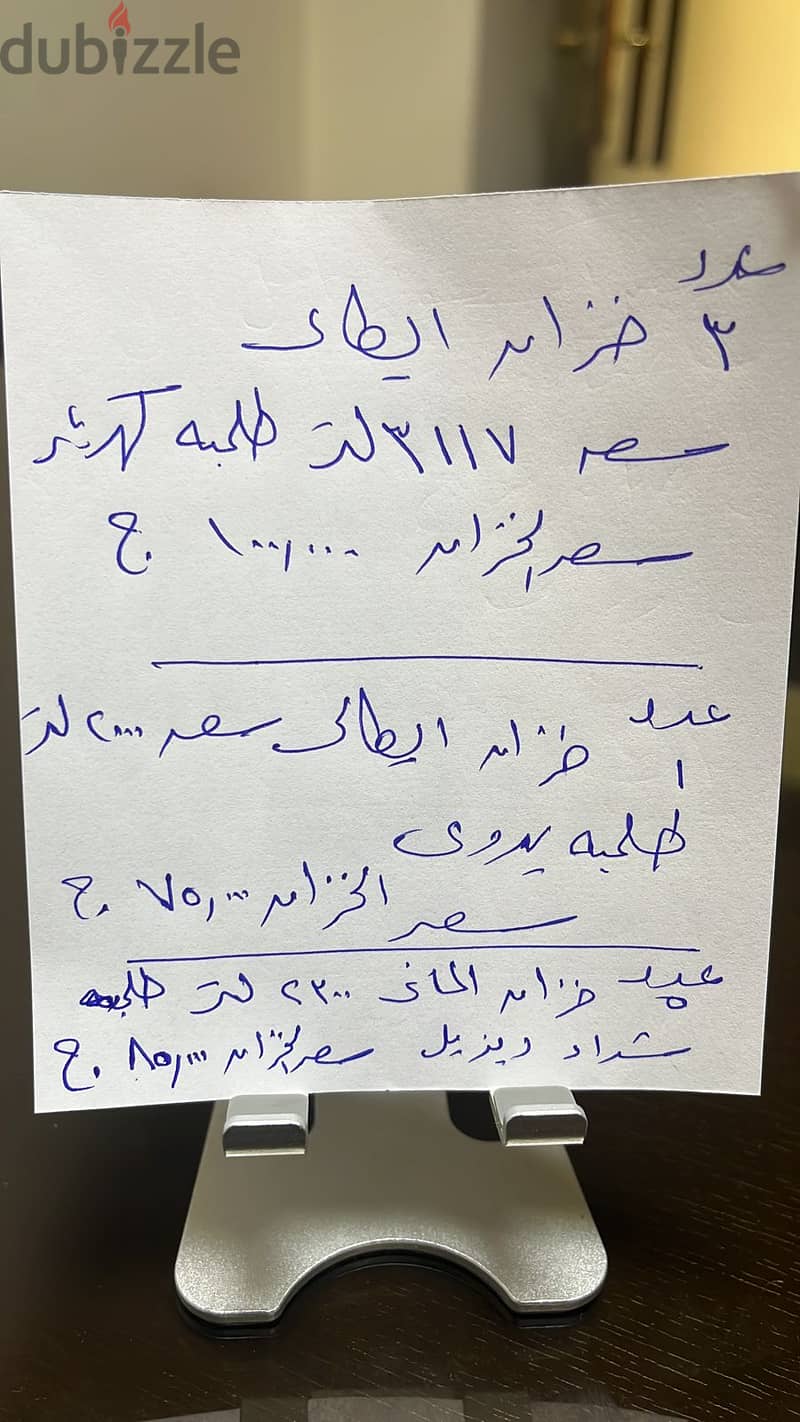 dubizzle
عدد
٣ خزان ايطالى
سعه ٣١١٧ لتر طلمبه كهرباء
سعر الخزان ١٠٠,٠٠٠ ج.
عدد خزان ايطالى سعه ٢٠٠٠ لتر
١
طلمبه يدوى
سعر الخزان ٧٥,٠٠٠ ج.
عدد خزان المانى ٢٣٠٠ لتر طلمبه
٥
شداد ديزيل سعر الخزان ٨٥,٠٠٠ ج.